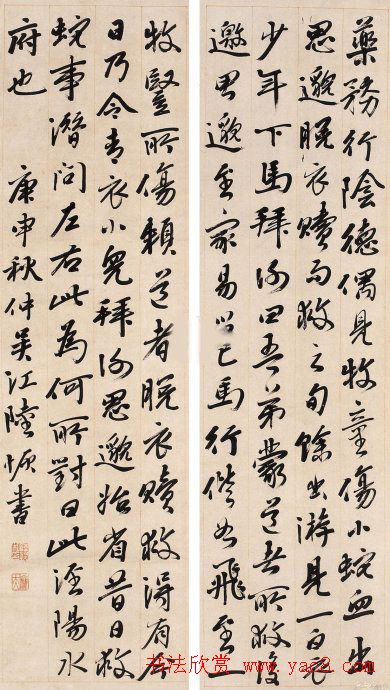 藥務行陰德偶見牧童傷小蛇血出
思邈脫衣贖而救之旬餘出游見一白衣
少年下馬拜謝曰吾弟蒙道者所救復
邀思邈至家易以己馬行偕如飛至一
牧豎所傷賴道者脫衣贖救得有今
日乃令青衣小兒拜謝思邈始省昔日救
蛇事潛問左右此為何所對曰此涇陽水
府也 庚申秋仲吳江陸恢書
书法欣赏 www.yac8.com